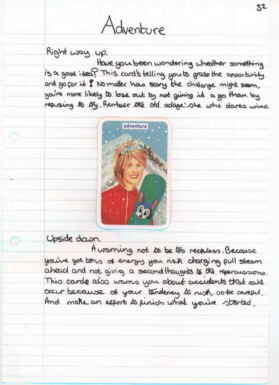 52
Adventure
Right way up.
Have you been wondering whether something
is a good idea? This card's telling you to grasp the opportunity
and go for it! No matter how scary the challenge might seem,
you're more likely to lose out by not giving it a go than by
refusing to try. Remember the old adage: she who dares wins
adventure
Upside down.
A warning not to be too reckless. Because
you've got tons of energy you risk charging full steam
ahead and not giving a second thoughts to the repercussions.
This cards also warns you about accidents that could
occur because of your tendency to rush, so be careful.
And make an effort to finish what you've started.